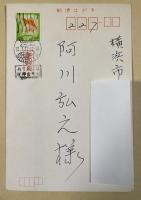 郵便はがき
227-
横浜市
阿川弘之様